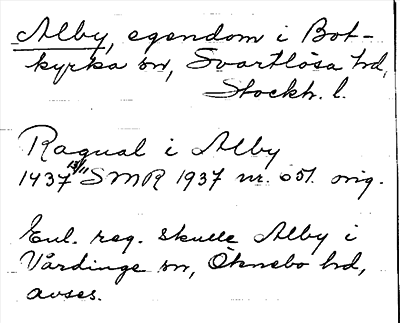 Alby, egendom i Bot-
kyrka sn, Svartlösa hd,
Stockh. l.
Ragual i Alby
1437 13/11 SMR 1937 nr. 051. orig.
Enl. reg. skulle Alby i
Vårdinge sn, Öknebo hd,
avses.